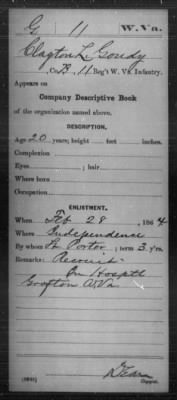 G 11 W.Va.
Clayton L. Goudy
, Co. B, 11 Reg't W. Va. Infantry.
Appears on
Company Descriptive Book
of the organization named above.
DESCRIPTION.
Age 20 years; height feet inches.
Complexion
Eyes ; hair
Where born
Occupation
ENLISTMENT.
When Feb 28, 1864
Where Independence
By whom Lt Porter; term 3 y'rs.
Remarks: Recruit
In Hosptl
Grafton W.Va
Copyist.